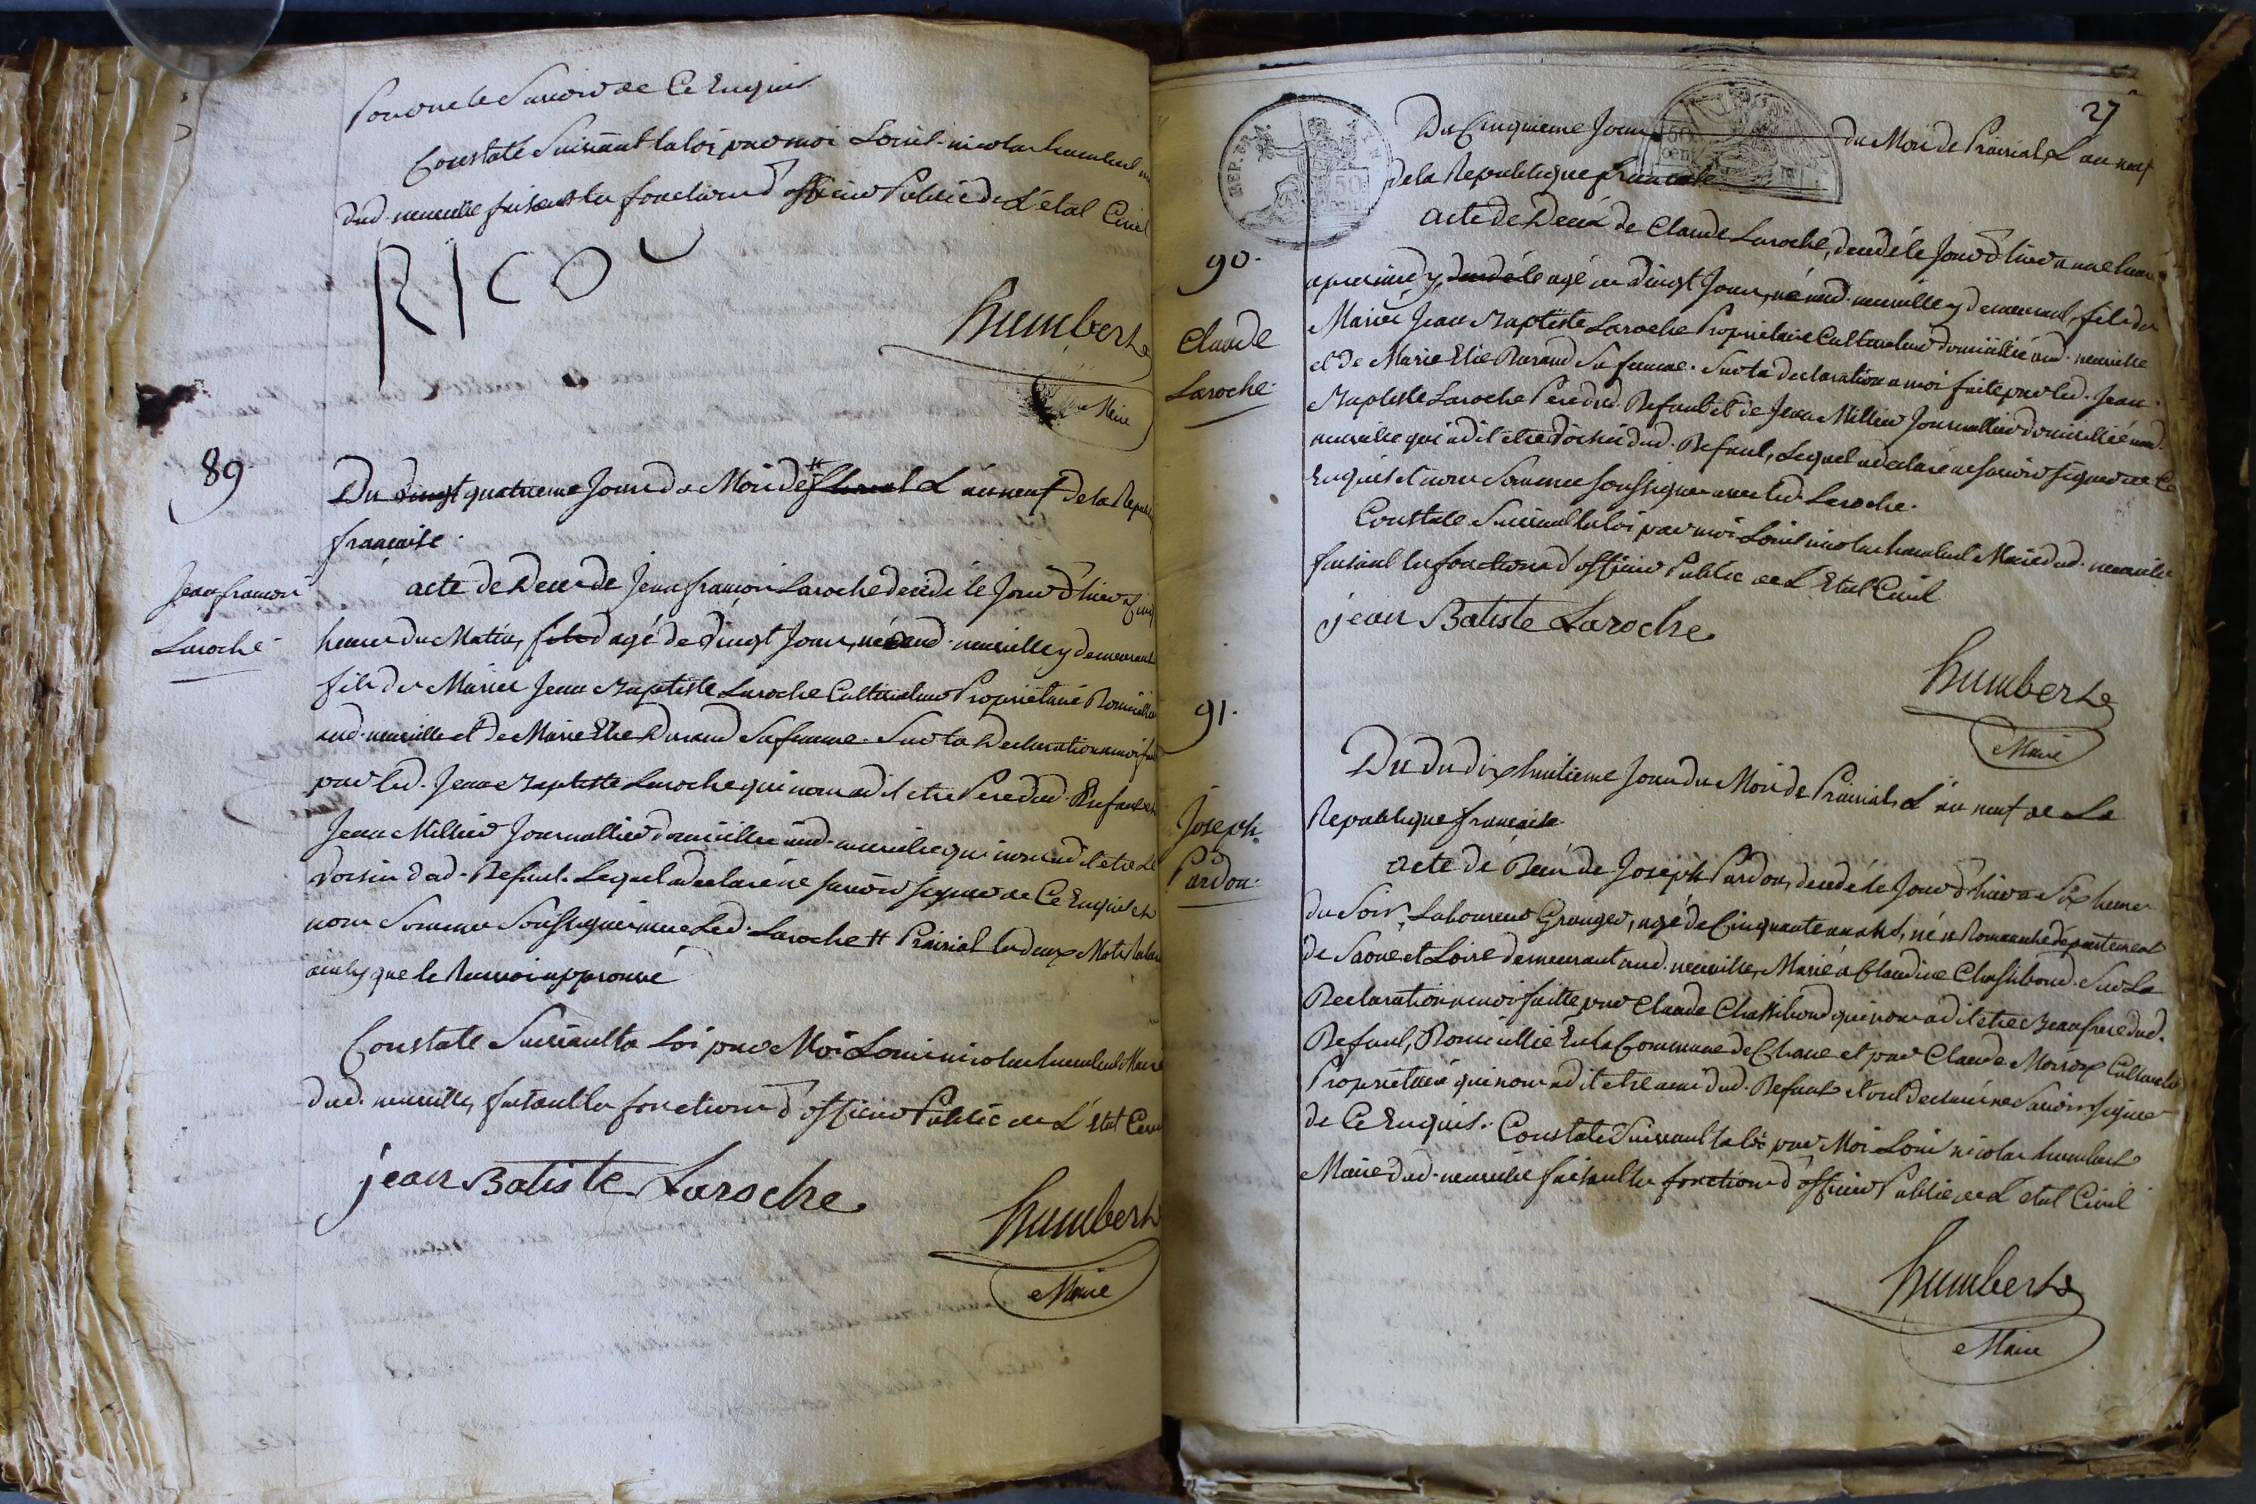 Pour ne le Savoir de Ce Enquis
Constaté Suivant la loi par moi Louis-nicolas humbert
dud. neuville faisant les fonctions d'officier Public de L'état Civil
RICO
humbert
Maire
89
Du vingt quatrieme Jour du Mois de # floreal L'an neuf de la Republi
française.
Jean françois
Laroche
acte de Décès de Jean françois Laroche decedé le Jour d'hier a Cinq
heures du Matin, fils d agé de Vingt Jours, né aud. neuville y demeurant
fils des Mariés Jean Baptiste Laroche Cultivateur Propriétaire Domicilié
aud. neuville et de Marie Elie Durand Sa femme. Sur la Declaration a moi faite
par led. Jean Baptiste Laroche qui nous a dit etre Pere dud. Defunt et
Jean Millier Journallier domicillié aud. neuville qui nous a dit etre Le
Voisin dud. Defunt. Lequel a declaré ne savoir signer de Ce Enquis et
nous Sommes Soussignés avec Led. Laroche # Prairial les deux Mots Raturés
ainsy que le Renvoi approuvé
Constaté Suivant la Loi par Moi Louis nicolas humbert Maire
dud. neuville, faisant les fonctions d'officier Public de L'état Civil
jean Batiste Laroche
humbert
Maire
27
Du Cinquieme Jour du Mois de Prairial L'an neuf
de la Republique française
90.
Claude
Laroche.
acte de Décès de Claude Laroche, decedé le Jour d'hier a une heure
apres midy, decedé le agé de Vingt Jours, né aud. neuville y demeurant, fils des
Mariés Jean Baptiste Laroche Propriétaire Cultivateur domicilié aud. neuville
et de Marie Elie Durand Sa femme. Sur la declaration a moi faite par led. Jean
Baptiste Laroche Pere dud. Defunt et de Jean Millier Journallier domicillié aud.
neuville qui a dit etre Voisin dud. Defunt, Lequel a declaré ne savoir signer de Ce
Enquis et nous Sommes soussignes avec led. Laroche.
Constaté Suivant la loi par moi Louis nicolas humbert Maire dud. neuville
faisant les fonctions d'officier Public de L'Etat Civil
jean Batiste Laroche
humbert
Maire
91.
Joseph
Pardon.
Du du dix huitieme Jour du Mois de Prairial, L'an neuf de La
Republique française
acte de Décès de Joseph Pardon, decedé le Jour d'hier a Six heures
du Soir, Laboureur Granger, agé de Cinquante ans, né a Romaneche département
de Saone et Loire demeurant aud. neuville, Marié a Claudine Chassibout. Sur La
Declaration a moi faitte par Claude Chassibout qui nous a dit etre Beaufrere dud.
Defunt, Domicillié En la Commune de Chane et par Claude Moiroux Cultivateur
Propriétaire qui nous a dit etre ami dud. Defunt et ont Declaré ne Savoir signer
de Ce Enquis. Constaté Suivant la loi par Moi Louis nicolas humbert
Maire dud. neuville faisant les fonctions d'officier Public de L'etat Civil
humbert
Maire